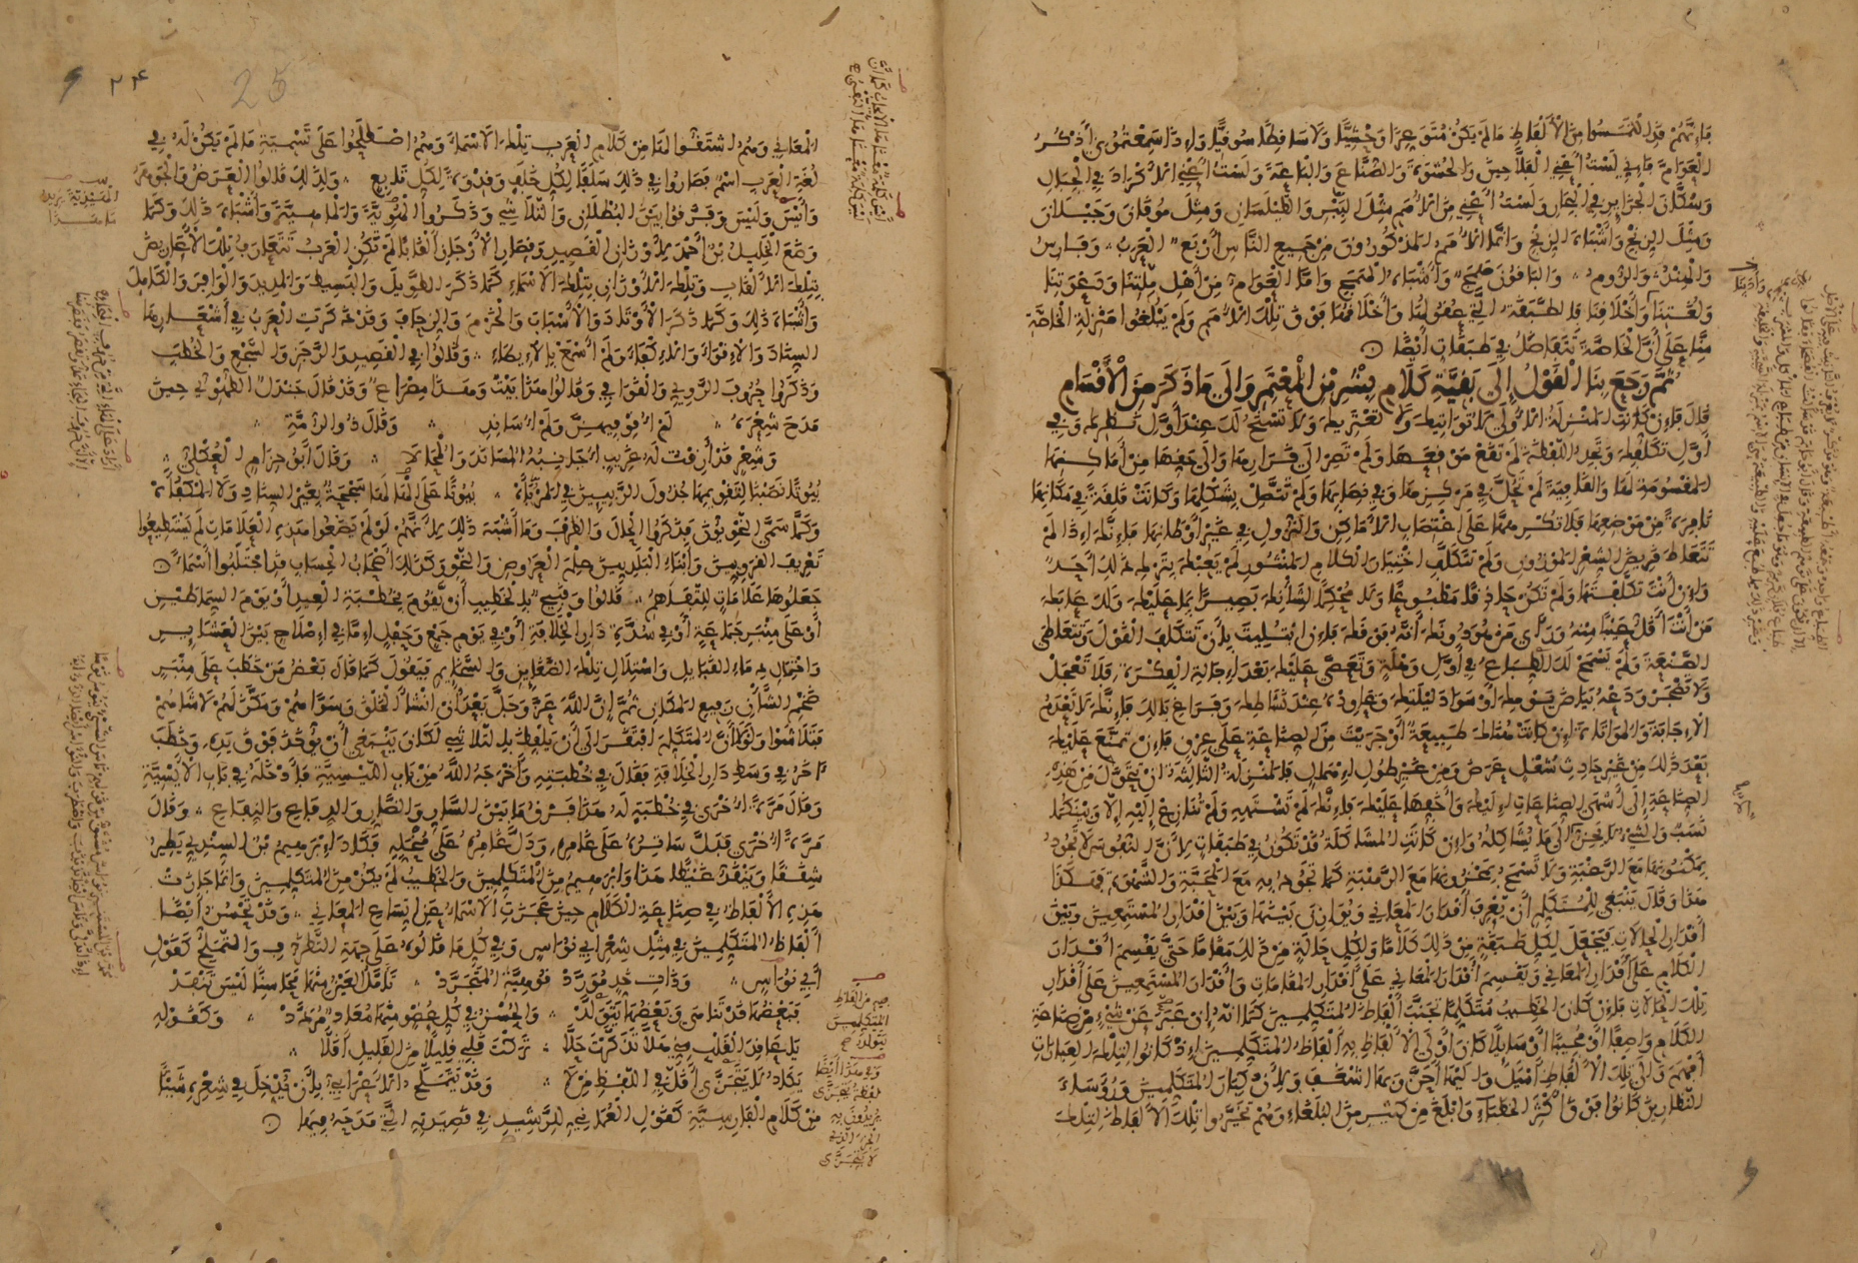 فإنهم قد التمسوا من الألفاظ ما لم يكن متوعرا وحشيا ولا ساقطا سوقيا وإذا سمعتموني أذكر
العوام فإني لست أعني الفلاحين والحشوة والصناع والباعة ولست أعني الأكراد في الجبال
وسكان الجزائر في البحار ولست أعني من الأمم مثل الببر والطيلسان ومثل موقان وجيلان
ومثل الزنج وأشباه الزنج وإنما الأمم المذكورون من جميع الناس أربع العرب وفارس
والهند والروم والباقون همج وأشباه الهمج وأما العوام من أهل ملتنا ودعوتنا
ولغتنا وأدبنا وأخلاقنا فالطبقة التي عقولها وأخلاقها فوق تلك الأمم ولم يبلغوا منزلة الخاصة
منا على أن الخاصة تتفاضل في طبقات أيضا
ثم رجع بنا القول إلى بقية كلام بشر بن المعتمر وإلى ما ذكر من الأقسام
قال فإن كانت المنزلة الأولى لا تواتيك ولا تعتريك ولا تسنح لك عند أول نظرك وفي
أول تكلفك وتجد اللفظة لم تقع موقعها ولم تصر إلى قرارها وإلى حقها من أماكنها
المقسومة لها والقافية لم تحل في مركزها وفي نصابها ولم تتصل بشكلها وكانت قلقة في مكانها
نافرة من موضعها فلا تكرهها على اغتصاب الأماكن والنزول في غير أوطانها فإنك إذا لم
تتعاط قريض الشعر الموزون ولم تتكلف اختيار الكلام المنثور لم يعبك بترك ذلك أحد
وإن أنت تكلفتها ولم تكن حاذقا مطبوعا ولا محكما لشأنك بصيرا بما عليك ولك عابك
من أنت أقل عيبا منه ورأى من هو دونك أنه فوقك فإن ابتليت بأن تتكلف القول وتتعاطى
الصنعة ولم تسمح لك الطباع في أول وهلة وتعصى عليك بعد إجالة الفكرة فلا تعجل
ولا تضجر ودعه بياض يومك أو سواد ليلتك وعاوده عند نشاطك وفراغ بالك فإنك لا تعدم
الإجابة والمواتاة إن كانت هناك طبيعة أو جريت من الصناعة على عرق فإن تمنع عليك
بعد ذلك من غير حادث شغل عرض ومن غير طول إهمال فالمنزلة الثالثة أن تتحول من هذه
الصناعة إلى أشهى الصناعات إليك وأخفها عليك فإنك لم تشتهه ولم تنازع إليه إلا وبينكما
نسب والشيء لا يحن إلا إلى ما يشاكله وإن كانت المشاكلة قد تكون في طبقات لأن النفوس لا تجود
بمكنونها مع الرغبة ولا تسمح بمخزونها مع الرهبة كما تجود به مع المحبة والشهوة فهكذا
هذا وقال ينبغي للمتكلم أن يعرف أقدار المعاني ويوازن بينها وبين أقدار المستمعين وبين
أقدار الحالات فيجعل لكل طبقة من ذلك كلاما ولكل حالة من ذلك مقاما حتى يقسم أقدار
الكلام على أقدار المعاني ويقسم أقدار المعاني على أقدار المقامات وأقدار المستمعين على أقدار
تلك الحالات فإن كان الخطيب متكلما تجنب ألفاظ المتكلمين كما أنه إن عبر عن شيء من صناعة
الكلام واصفا أو مجيبا أو سائلا كان أولى الألفاظ به ألفاظ المتكلمين إذ كانوا لتلك العبارات
أفهم وإلى تلك الألفاظ أميل وإليها أحن وبها أشغف ولأن كبار المتكلمين ورؤساء
النظارين كانوا فوق أكثر الخطباء وأبلغ من كثير من البلغاء وهم تخيروا تلك الألفاظ لتلك
٢٤
25
المعاني وهم اشتقوا لها من كلام العرب تلك الأسماء وهم اصطلحوا على تسمية ما لم يكن له في
لغة العرب اسم فصاروا في ذلك سلفا لكل خلف وقدوة لكل تابع ولذلك قالوا العرض والجوهر
وأيس وليس وفرقوا بين البطلان والتلاشي وذكروا الهوية والماهية وأشباه ذلك وكما
وضع الخليل بن أحمد لأوزان القصيد وقصار الأرجاز ألقابا لم تكن العرب تتعارف تلك الأعاريض
بتلك الألقاب وتلك الأوزان بتلك الأسماء كما ذكر الطويل والبسيط والمديد والوافر والكامل
وأشباه ذلك وكما ذكر الأوتاد والأسباب والخرم والزحاف وقد ذكرت العرب في أشعارها
السناد والإقواء والإكفاء ولم أسمع بالإيطاء وقالوا في القصيد والرجز والسجع والخطب
وذكروا حروف الروي والقوافي وقالوا هذا بيت وهذا مصراع وقد قال جندل الطهوي حين
مدح شعره لم أقو فيهن ولم أساند وقال ذو الرمة
وشعر قد أرقت له غريب أجانبه المساند والمحالا وقال أبو حزام العكلي
بيوتا نصبنا لتقويمها جذول الربيئين في المربأة بيوتا على الها لها سجحة بغير السناد ولا المكفأة
وكما سمى النحويون فذكروا الحال والظرف وما أشبه ذلك لأنهم لو لم يضعوا هذه العلامات لم يستطيعوا
تعريف القرويين وأبناء البلديين علم العروض والنحو وكذلك أصحاب الحساب قد اجتلبوا أسماء
جعلوها علامات للتفاهم قالوا وقبيح بالخطيب أن يقوم بخطبة العيد أو يوم السماطين
أو على منبر جماعة أو في سدة دار الخلافة أو في يوم جمع وحفل إما في إصلاح بين العشائر
واحتمال دماء القبائل واستلال تلك الضغائن والسخائم فيقول كما قال بعض من خطب على منبر
ضخم الشأن رفيع المكان ثم إن الله عز وجل بعد أن أنشأ الخلق وسواهم ومكن لهم لاشاهم
فتلاشوا ولولا أن المتكلم افتقر إلى أن يلفظ بالتلاشي لكان ينبغي أن يؤخذ فوق يده وخطب
آخر في وسط دار الخلافة فقال في خطبته وأخرجه الله من باب الليسية فأدخله في باب الأيسية
وقال مرة أخرى في خطبة له هذا فرق ما بين السار والضار والدفاع والنفاع وقال
مرة أخرى فدل ساتره على غامره ودل غامره على منحله فكاد إبرهيم بن السندي يطير
شققا وينقد غيظا هذا وإبرهيم من المتكلمين والخطيب لم يكن من المتكلمين وإنما جازت
هذه الألفاظ في صناعة الكلام حين عجزت الأسماء عن اتساع المعاني وقد تحسن أيضا
ألفاظ المتكلمين في مثل شعر أبي نواس وفي كل ما قالوه على جهة التظرف والتملح كقول
أبي نواس وذات خد مورد قوهية المتجرد تأمل العين منها محاسنا ليس تنفد
فبعضها قد تناهى وبعضها يتولد والحسن في كل عضو منها معاد مردد وكقوله
يا عاقد القلب مني هلا تذكرت حلا تركت قلبي قليلا من القليل أقلا
يكاد لا يتجزى أقل في اللفظ من لا وقد يتملح الأعرابي بأن يدخل في شعره شيئا
من كلام الفارسية كقول العماني للرشيد في قصيدته التي مدحه فيها